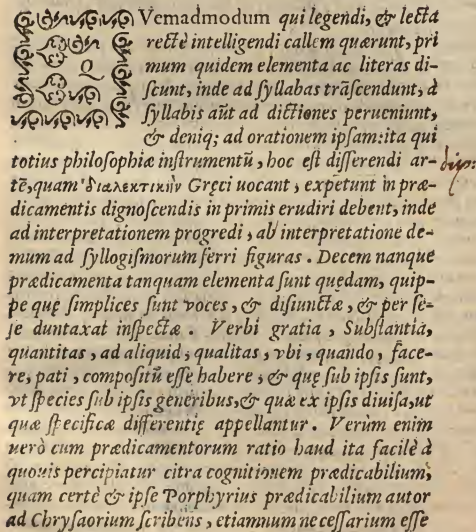 QVemadmodum qui legendi, & lecta
recte intelligendi callem quærunt, pri
mum quidem elementa ac literas di-
scunt, inde ad syllabas trãscendunt, à
syllabis aũt ad dictiones perueniunt,
& deniq; ad orationem ipsam: ita qui
totius philosophiæ instrumentũ, hoc est disserendi ar-
tẽ, quam διαλεκτικὴν Gręci uocant, expetunt in præ-
dicamentis dignoscendis in primis erudiri debent, inde
ad interpretationem progredi, ab interpretatione de-
mum ad syllogismorum ferri figuras. Decem nanque
prædicamenta tanquam elementa sunt quędam, quip-
pe quę simplices sunt voces, & disiunctæ, & per se-
se duntaxat inspectæ. Verbi gratia, Substantia,
quantitas, ad aliquid, qualitas, vbi, quando, face-
re, pati, compositũ esse habere, & quę sub ipsis sunt,
vt species sub ipsis generibus, & quæ ex ipsis diuisa, ut
quæ specificæ differentię appellantur. Verùm enim
uerò cum prædicamentorum ratio haud ita facilè à
quouis percipiatur citra cognitionem prædicabilium,
quam certè & ipse Porphyrius prædicabilium autor
ad Chrysaorium scribens, etiamnum necessarium esse